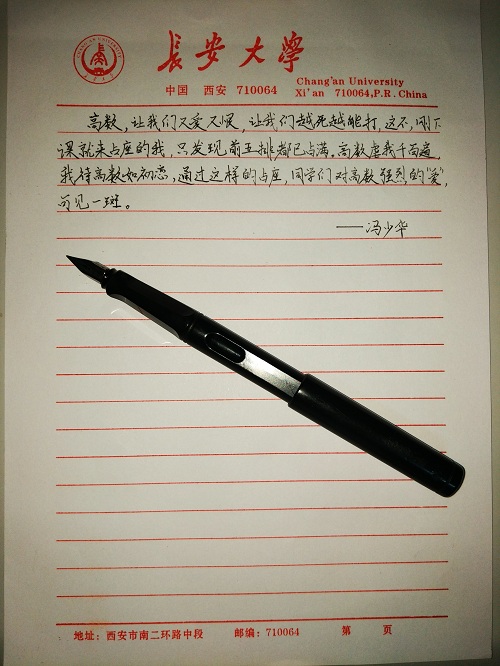 CHANG'AN UNIVERSITY
长安大学
长安大学
中国 西安 710064
Chang'an University
Xi'an 710064,P.R.China
高数,让我们又爱又恨,让我们越死越能打,这不,刚下
课就来占座的我,只发现前五排都已占满。高数虐我千百遍,
我待高数如初恋,通过这样的占座,同学们对高数强烈的“爱”,
可见一斑。
——冯少华
地址:西安市南二环路中段 邮编:710064 第 页